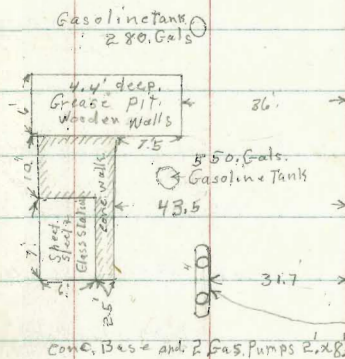 Gasoline Tank
280. Gals
4.4' deep.
Grease Pit.
Wooden Walls
6'
36'
7.5
10'
conc. walls
550. Gals.
Gasoline Tank
43.5
7'
Sheet
Steel &
Glass Station
6'
2.5'
31.7'
Conc. Base and 2 Gas. Pumps 2'x8'